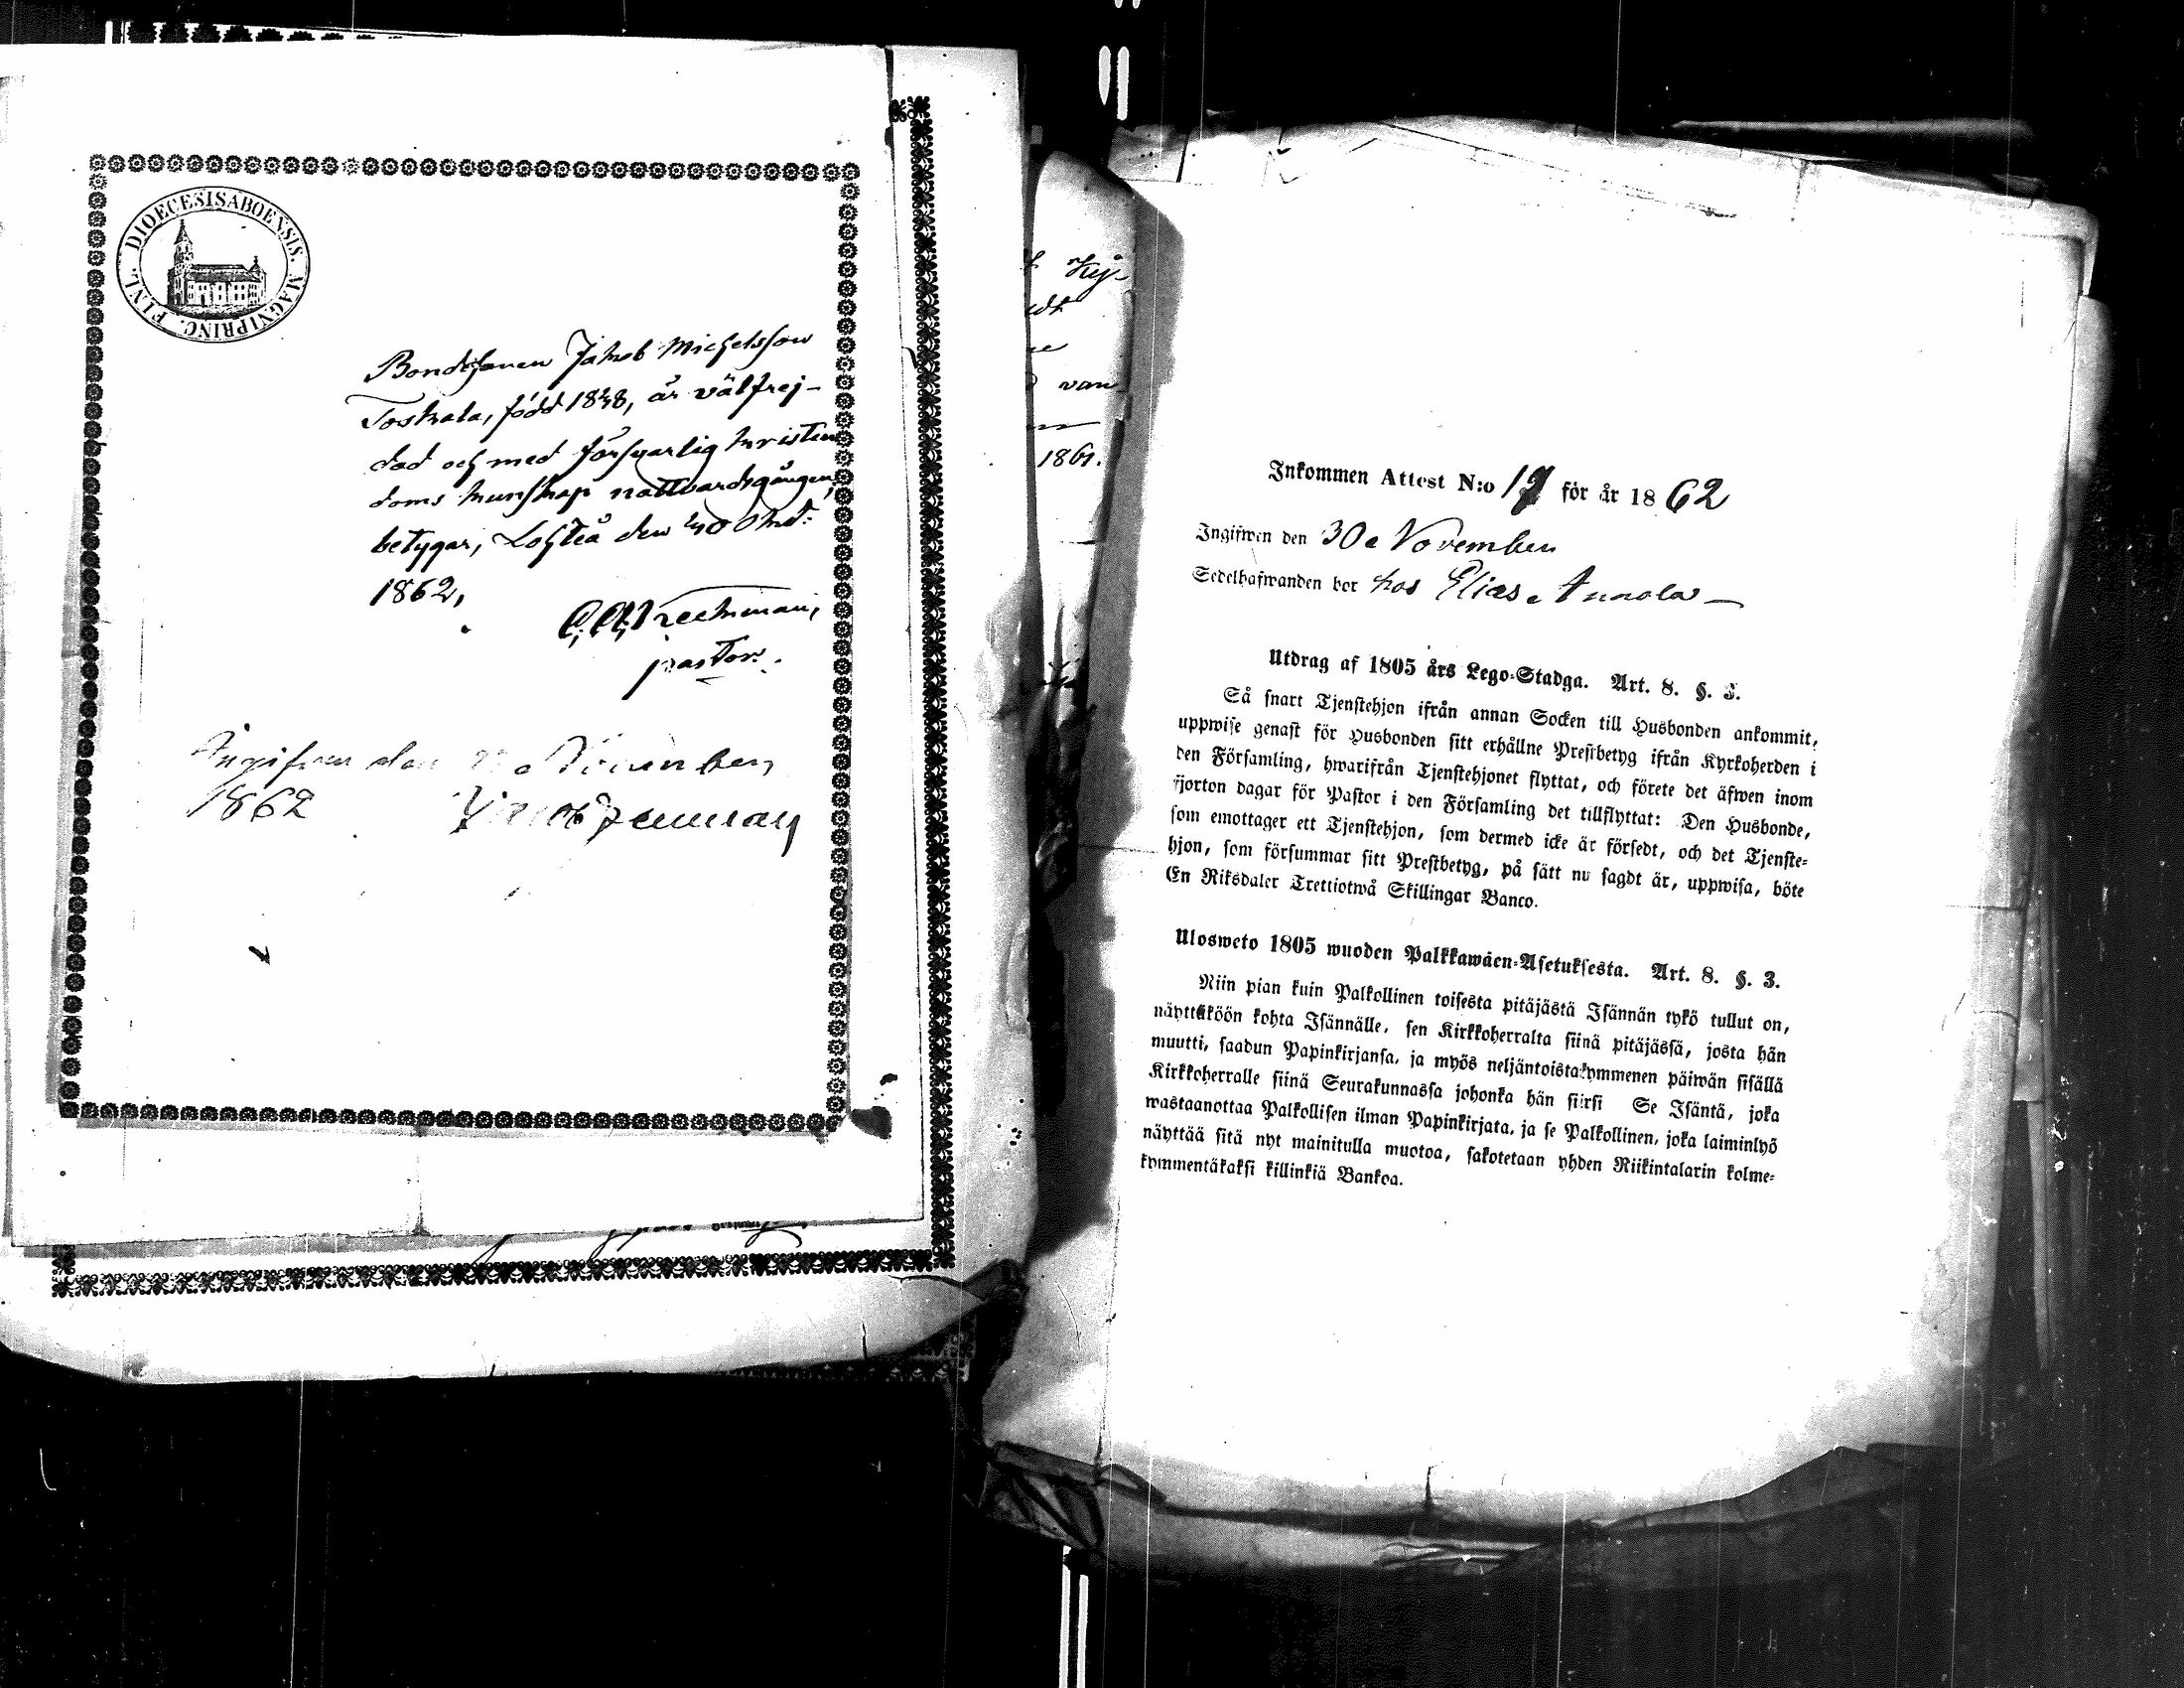 DIOECESIS ABOENSIS. MAGNI PRINC. FINL.
Bondesonen Jakob Michelsson
Toskala, född 1838, är välfrej-
dad och med försvarlig kristen
doms kunskap nattvardsgången,
betygar, Lochteå den
1862,
pastor.
Ingifven den November
1862
Kyr
van
1861.
Inkommen Attest N:o 17 för år 1862
Ingifwen den 30 November
Sedelhafwanden bor hos Elias Annola
Utdrag af 1805 års Lego-Stadga. Art. 8. §. 3.
Så snart Tjenstehjon ifrån annan Socken till Husbonden ankommit,
uppwise genast för Husbonden sitt erhållne Prestbetyg ifrån Kyrkoherden i
den Församling, hwarifrån Tjenstehjonet flyttat, och förete det äfwen inom
fjorton dagar för Pastor i den Församling det tillflyttat: Den Husbonde,
som emottager ett Tjenstehjon, som dermed icke är försedt, och det Tjenste-
hjon, som försummar sitt Prestbetyg, på sätt nu sagdt är, uppwisa, böte
En Riksdaler Trettiotwå Skillingar Banco.
Ulosweto 1805 wuoden Palkkawäen-Asetuksesta. Art. 8. §. 3.
Niin pian kuin Palkollinen toisesta pitäjästä Isännän tykö tullut on,
näyttäköön kohta Isännälle, sen Kirkkoherralta siinä pitäjässä, josta hän
muutti, saadun Papinkirjansa, ja myös neljäntoistakymmenen päiwän sisällä
Kirkkoherralle siinä Seurakunnassa johonka hän siirsi Se Isäntä, joka
wastaanottaa Palkollisen ilman Papinkirjata, ja se Palkollinen, joka laiminlyö
näyttää sitä nyt mainitulla muotoa, sakotetaan yhden Riikintalarin kolme-
kymmentäkaksi killinkiä Bankoa.